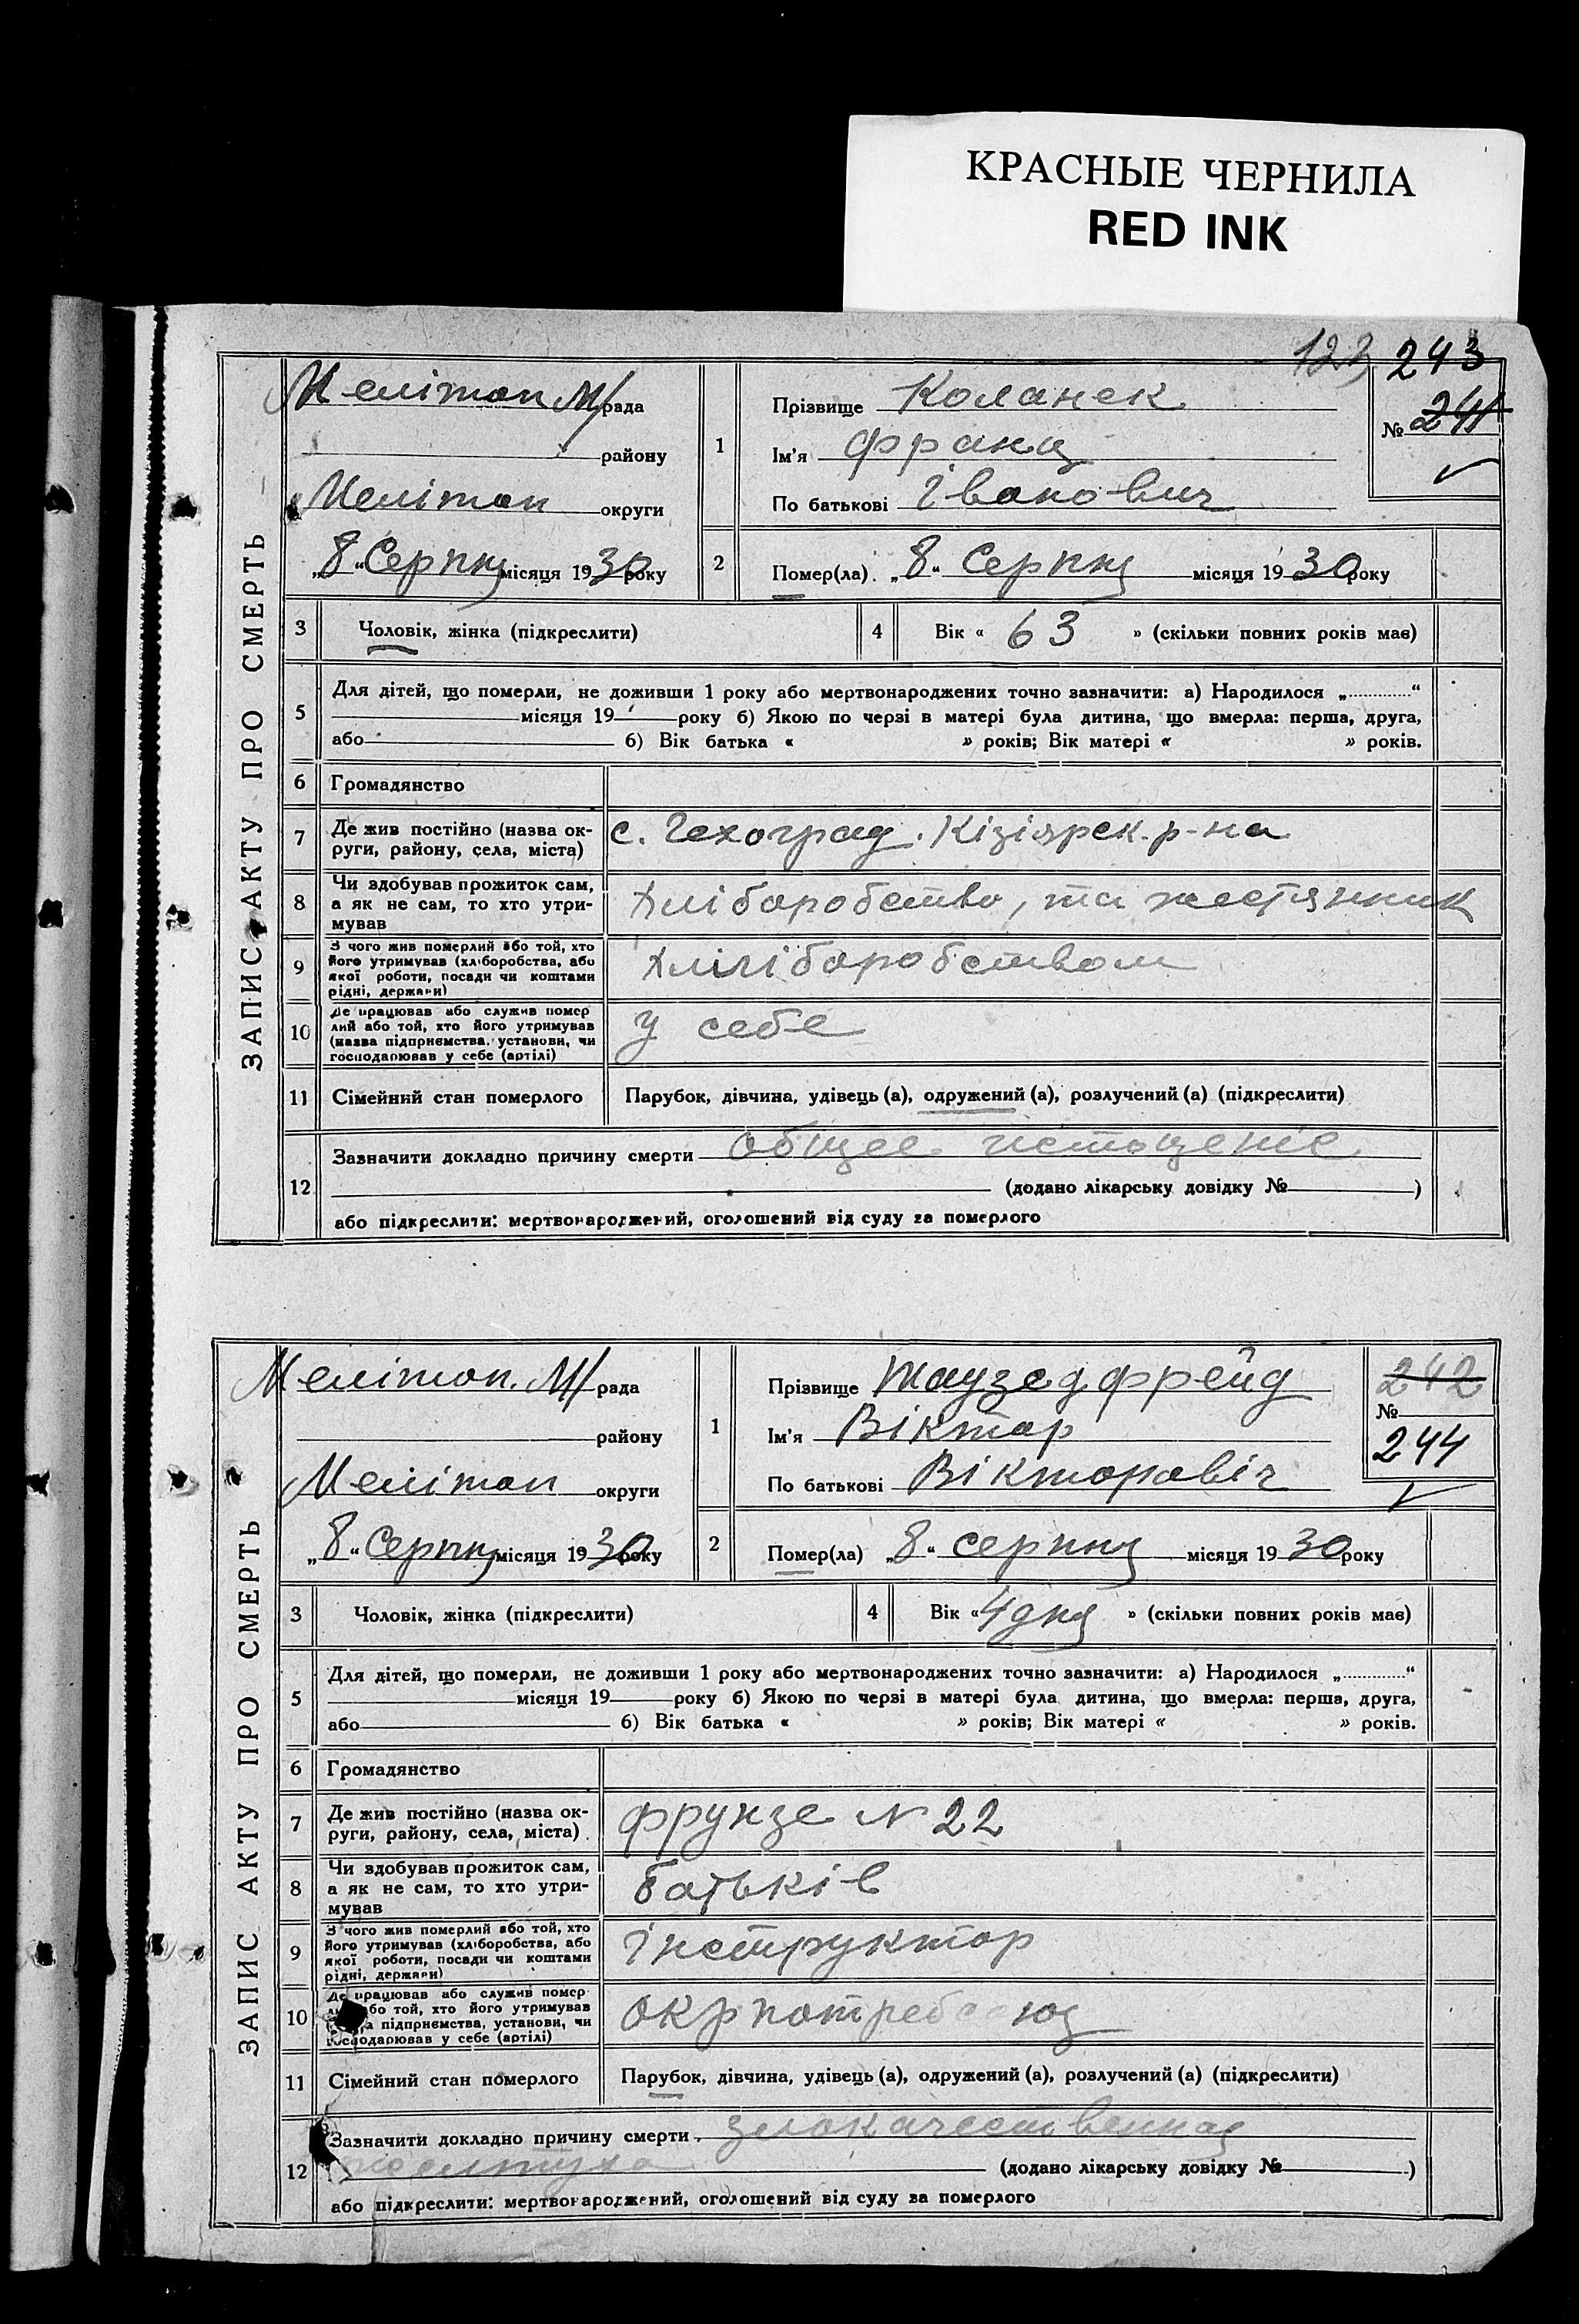 КРАСНЫЕ ЧЕРНИЛА
RED INK
123 243
ЗАПИС АКТУ ПРО СМЕРТЬ
Мелітоп М/рада
району
Мелітоп округи
„8“ Серпня місяця 1930 року
1
Прізвище Коланек
Ім'я Франц
По батькові Іванович
№ 241
2
Помер(ла) „8“ Серпня місяця 1930 року
3 Чоловік, жінка (підкреслити)
4 Вік « 63 » (скільки повних років має)
5 Для дітей, що померли, не доживши 1 року або мертвонароджених точно зазначити: а) Народилося „............“
місяця 19 року б) Якою по черзі в матері була дитина, що вмерла: перша, друга,
або б) Вік батька « » років; Вік матері « » років.
6 Громадянство
7 Де жив постійно (назва ок-
руги, району, села, міста)
с. Чехоград. Кізіярск. р-на
8 Чи здобував прожиток сам,
а як не сам, то хто утри-
мував
Хліборобство, та жестяник
9 З чого жив померлий або той, хто
його утримував (хліборобства, або
якої роботи, посади чи коштами
рідні, держави)
Хліборобством
10 Де працював або служив помер
лий або той, хто його утримував
(назва підприємства, установи, чи
господарював у себе (артілі)
у себе
11 Сімейний стан померлого
Парубок, дівчина, удівець (а), одружений (а), розлучений (а) (підкреслити)
12 Зазначити докладно причину смерти общее истощеніе
(додано лікарську довідку № )
або підкреслити: мертвонароджений, оголошений від суду за померлого
ЗАПИС АКТУ ПРО СМЕРТЬ
Мелітоп. М/рада
району
Мелітоп округи
„8“ Серпня місяця 1930 року
1
Прізвище Таузедфрейд
Ім'я Віктор
По батькові Вікторовіч
242
№
244
2
Помер(ла) „8“ серпня місяця 1930 року
3 Чоловік, жінка (підкреслити)
4 Вік « 4 дня » (скільки повних років має)
5 Для дітей, що померли, не доживши 1 року або мертвонароджених точно зазначити: а) Народилося „............“
місяця 19 року б) Якою по черзі в матері була дитина, що вмерла: перша, друга,
або б) Вік батька « » років; Вік матері « » років.
6 Громадянство
7 Де жив постійно (назва ок-
руги, району, села, міста)
Фрунзе № 22
8 Чи здобував прожиток сам,
а як не сам, то хто утри-
мував
батьків
9 З чого жив померлий або той, хто
його утримував (хліборобства, або
якої роботи, посади чи коштами
рідні, держави)
Інструктор
10 Де працював або служив помер
або той, хто його утримував
підприємства, установи, чи
господарював у себе (артілі)
окрпотребсоюз
11 Сімейний стан померлого
Парубок, дівчина, удівець (а), одружений (а), розлучений (а) (підкреслити)
12 Зазначити докладно причину смерти злокачественная
желтуха (додано лікарську довідку № )
або підкреслити: мертвонароджений, оголошений від суду за померлого